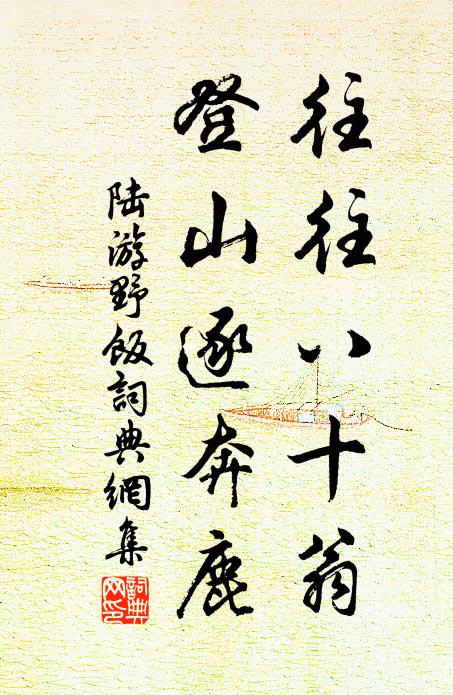 往往八十翁
登山逐奔鹿
陆游野飯詞典網集
詞典
网印